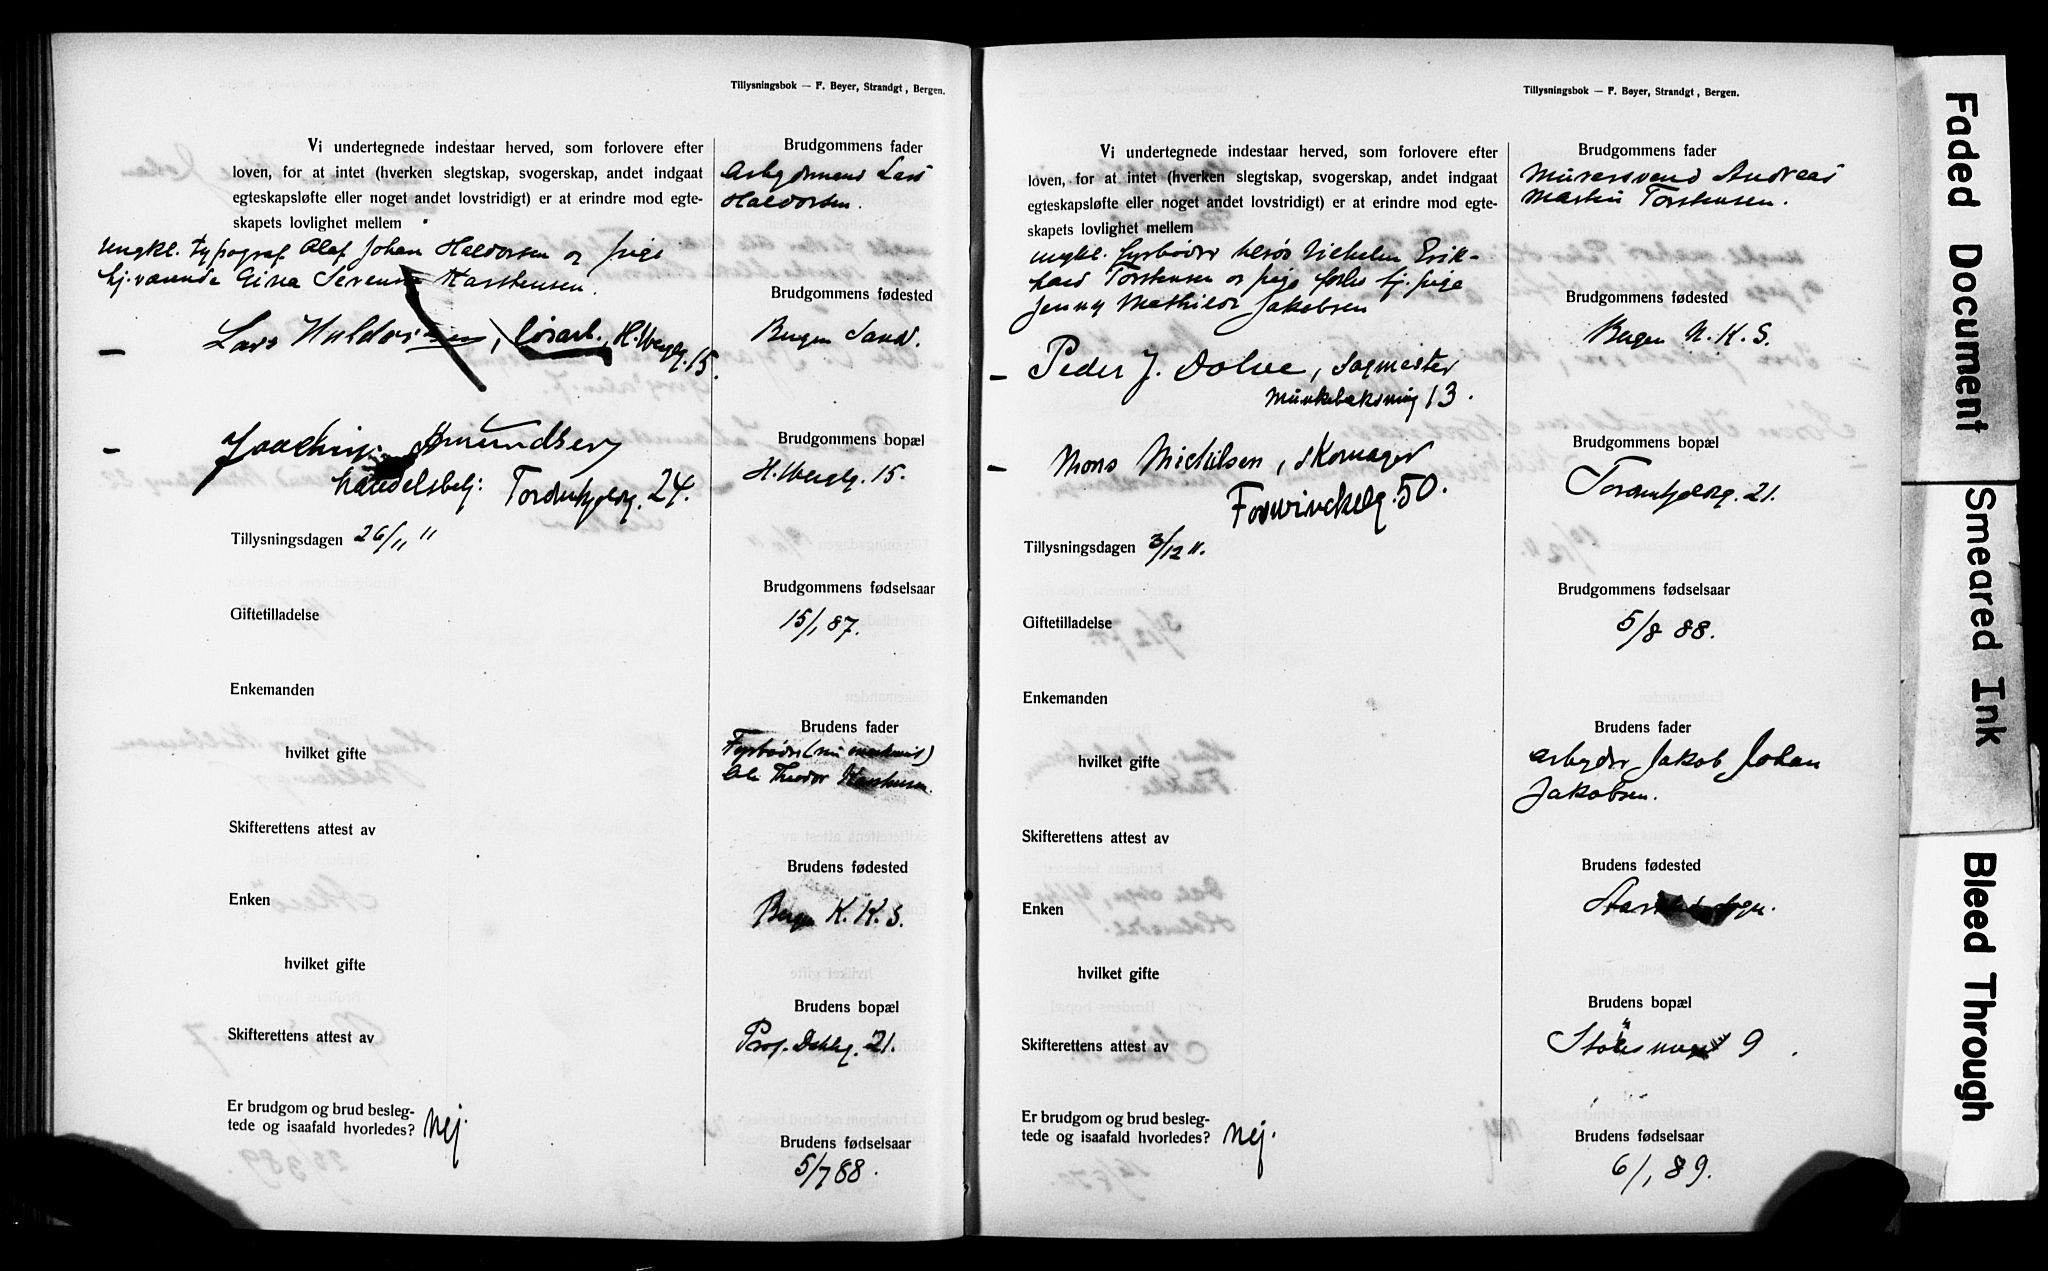 Tillysningsbok — F. Beyer, Strandgt, Bergen.
Vi undertegnede indestaar herved, som forlovere efter
loven, for at intet (hverken slegtskap, svogerskap, andet indgaat
egteskapsløfte eller noget andet lovstridigt) er at erindre mod egte-
skapets lovlighet mellem
ungkl. typograf Olaf Johan Haldorsen og pige
hj.værende Gina Severine Karstensen.
Lars Haldorsen, løsarb., H. Wergg. 15.
Joachim Amundsen
handelsbetj: Tordenskjoldsg. 24.
Tillysningsdagen 26/11 11
Giftetilladelse
Enkemanden
hvilket gifte
Skifterettens attest av
Enken
hvilket gifte
Skifterettens attest av
Er brudgom og brud besleg-
tede og isaafald hvorledes? Nej.
Brudgommens fader
Arbeidsmand Lars
Haldorsen.
Brudgommens fødested
Bergen Sandv.
Brudgommens bopæl
H. Wergg. 15.
Brudgommens fødselsaar
15/1 87.
Brudens fader
Fyrbøder (nu maskinist)
Ole Theodor Karstensen.
Brudens fødested
Bergen K. K. S.
Brudens bopæl
Prof. Dahlsg. 21.
Brudens fødselsaar
5/7 88.
Tillysningsbok — F. Beyer, Strandgt, Bergen.
Vi undertegnede indestaar herved, som forlovere efter
loven, for at intet (hverken slegtskap, svogerskap, andet indgaat
egteskapsløfte eller noget andet lovstridigt) er at erindre mod egte-
skapets lovlighet mellem
ungkl. fyrbøder tilsøs Vilhelm Erik-
hard Torstensen og pige hj. pige
Jenny Mathilde Jakobsen
Peder J. Dolve, Sagmester
Munkebæksvug 13.
Mons Mickelsen, Skomager
Formanns 50.
Tillysningsdagen 3/12 11.
Giftetilladelse
Enkemanden
hvilket gifte
Skifterettens attest av
Enken
hvilket gifte
Skifterettens attest av
Er brudgom og brud besleg-
tede og isaafald hvorledes? Nej.
Brudgommens fader
Murersvend Andreas
Martin Torstensen.
Brudgommens fødested
Bergen N. K. S.
Brudgommens bopæl
Tordenskjoldsg. 21.
Brudgommens fødselsaar
5/8 88.
Brudens fader
Arbeider Jakob Johan
Jakobsen.
Brudens fødested
Brudens bopæl
Stølesmuget 9.
Brudens fødselsaar
6/1 89.
Faded Document
Smeared Ink
Bleed Through